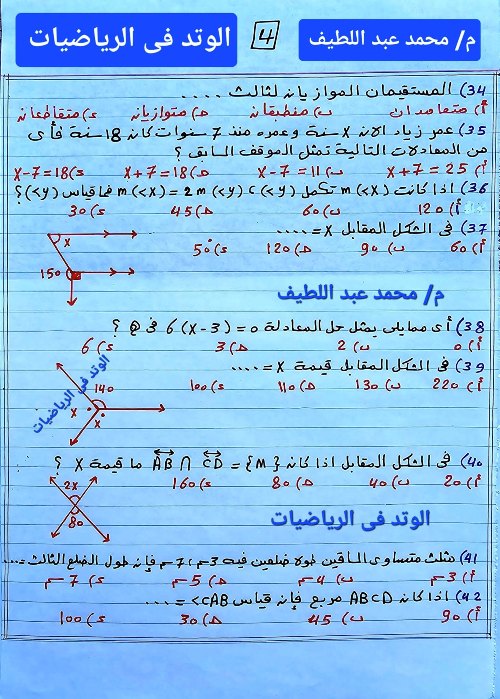 م/ محمد عبد اللطيف 4 الوتد فى الرياضيات
34) المستقيمان الموازيان لثالث ....
أ) متعامدان ب) منطبقان ج) متوازيان د) متقاطعان
35) عمر زياد الان x سنة وعمره منذ 7 سنوات كان 18 سنة فأى
من المعادلات التالية تمثل الموقف السابق ؟
أ) x + 7 = 25 ب) x - 7 = 11 ج) x + 7 = 18 د) x - 7 = 18
36) اذا كانت m(<x) تكمل m(<x) = 2m(<y) ، (<y) فما قياس (<y)؟
أ) 120 ب) 60 ج) 45 د) 30
37) فى الشكل المقابل x = ....
أ) 60 ب) 90 ج) 120 د) 50
x
150
م/ محمد عبد اللطيف
38) أى ممايلى يمثل حل المعادلة 6(x-3) = 0 فى Q ؟
أ) 0 ب) 2 ج) 3 د) 6
39) فى الشكل المقابل قيمة x = ....
أ) 220 ب) 130 ج) 110 د) 100
140
x
x
الوتد فى الرياضيات
40) فى الشكل المقابل اذا كان AB ∩ CD = {M} ما قيمة x ؟
أ) 20 ب) 40 ج) 80 د) 160
2x
80
الوتد فى الرياضيات
41) مثلث متساوى الساقين طولا ضلعين فيه 3سم ، 7سم فإن طول الضلع الثالث = ....
أ) 3سم ب) 4سم ج) 5سم د) 7سم
42) اذا كان ABCD مربع فإن قياس <CAB = ....
أ) 90 ب) 45 ج) 30 د) 100